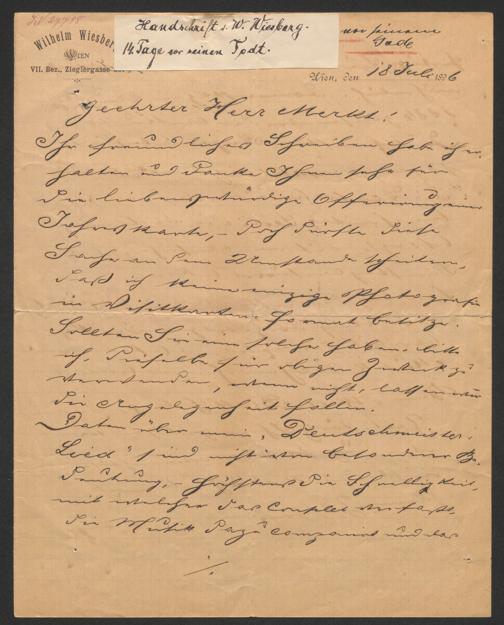 Wilhelm Wiesberg
WIEN
VII. Bez., Zieglergasse
Handschrift v. W. Wiesberg.
14 Tage vor seinem Todt.
vor seinem
Tode
Wien, den 18 Juli 1896
Geehrter Herr Merkt!
Ihr freundliches Schreiben hab ich er-
halten und danke Ihnen sehr für
die liebenswürdige Offerirung einer
Jahreskarte, – doch dürfte diese
Sache an dem Umstande scheitern,
daß ich keine einzige Photografie
in Visitkarten-Format besitze.
Sollten Sie eine solche haben, bitte
ich, dieselbe für obigen Zweck zu
verwenden, wenn nicht, lassen wir
die Angelegenheit fallen.
Daten über mein „Deutschmeister-
Lied" sind nicht von besonderer Be-
deutung, – höchstens die Schnelligkeit,
mit welcher das Couplet verfasst,
die Musik dazu componirt und das
./.